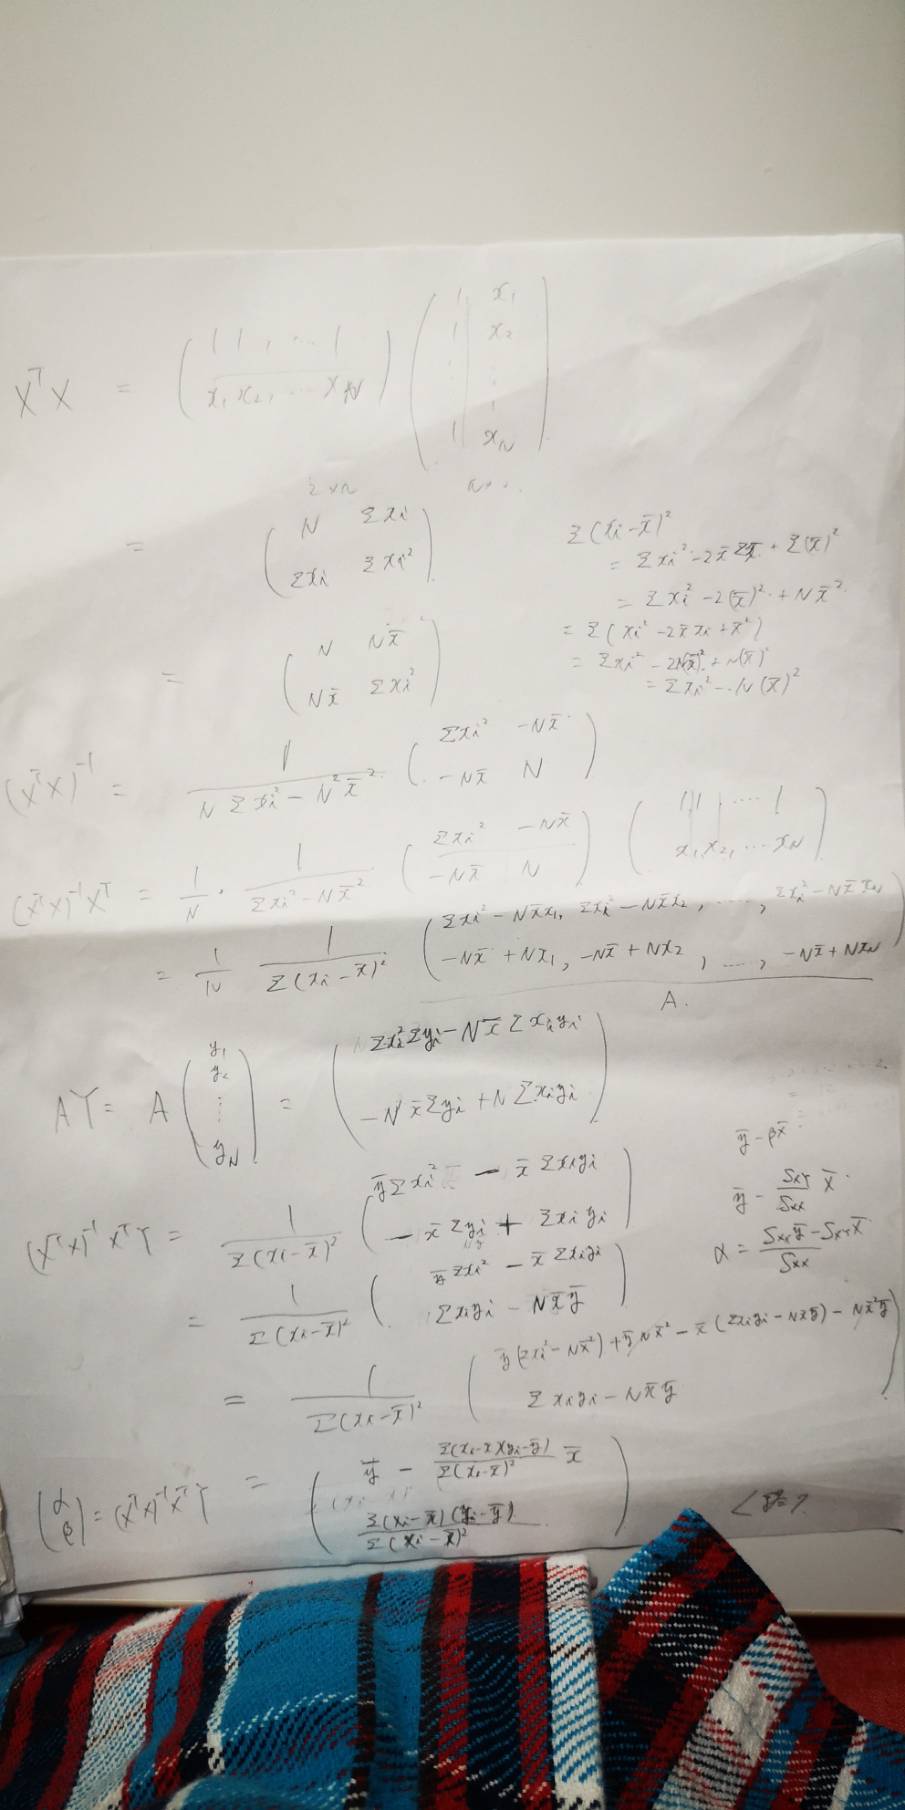 XᵀX = ( 1 1 , ... 1 / x₁ x₂, ... x_N ) ( 1 x₁ / 1 x₂ / ⋮ ⋮ / 1 x_N )
= ( N Σxi / Σxi Σxi² )
= ( N Nx̄ / Nx̄ Σxi² )
Σ(xi-x̄)²
= Σxi² - 2x̄Σx̄ + Σ(x̄)²
= Σxi² - 2(x̄)² + Nx̄²
= Σ(xi² - 2x̄xi + x̄²)
= Σxi² - 2N(x̄)² + N(x̄)²
= Σxi² - N(x̄)²
(XᵀX)⁻¹ = 1/(NΣxi² - N²x̄²) ( Σxi² -Nx̄ / -Nx̄ N )
(XᵀX)⁻¹Xᵀ = 1/N · 1/(Σxi² - Nx̄²) ( Σxi² -Nx̄ / -Nx̄ N ) ( 1 1 ... 1 / x₁, x₂, ... x_N )
= 1/N 1/Σ(xi-x̄)² ( Σxi² - Nx̄x₁, Σxi² - Nx̄x₂, ..., Σxi² - Nx̄x_N / -Nx̄ + Nx₁, -Nx̄ + Nx₂, ..., -Nx̄ + Nx_N )
A.
AY = A ( y₁ / y₂ / ⋮ / y_N ) = ( Σxi²Σyi - Nx̄Σxiyi / -Nx̄Σyi + NΣxiyi )
(XᵀX)⁻¹XᵀY = 1/Σ(xi-x̄)² ( ȳΣxi² - x̄Σxiyi / -x̄Σyi + Σxiyi )
= 1/Σ(xi-x̄)² ( ȳΣxi² - x̄Σxiyi / Σxiyi - Nx̄ȳ )
ȳ - βx̄
ȳ - Sxy/Sxx x̄
α = (Sxxȳ - Sxyx̄)/Sxx
= 1/Σ(xi-x̄)² ( ȳ(Σxi² - Nx̄²) + ȳNx̄² - x̄(Σxiyi - Nx̄ȳ) - Nx̄²ȳ / Σxiyi - Nx̄ȳ )
( α / β ) = (XᵀX)⁻¹XᵀY = ( ȳ - Σ(xi-x̄)(yi-ȳ)/Σ(xi-x̄)² x̄ / Σ(xi-x̄)(yi-ȳ)/Σ(xi-x̄)² )